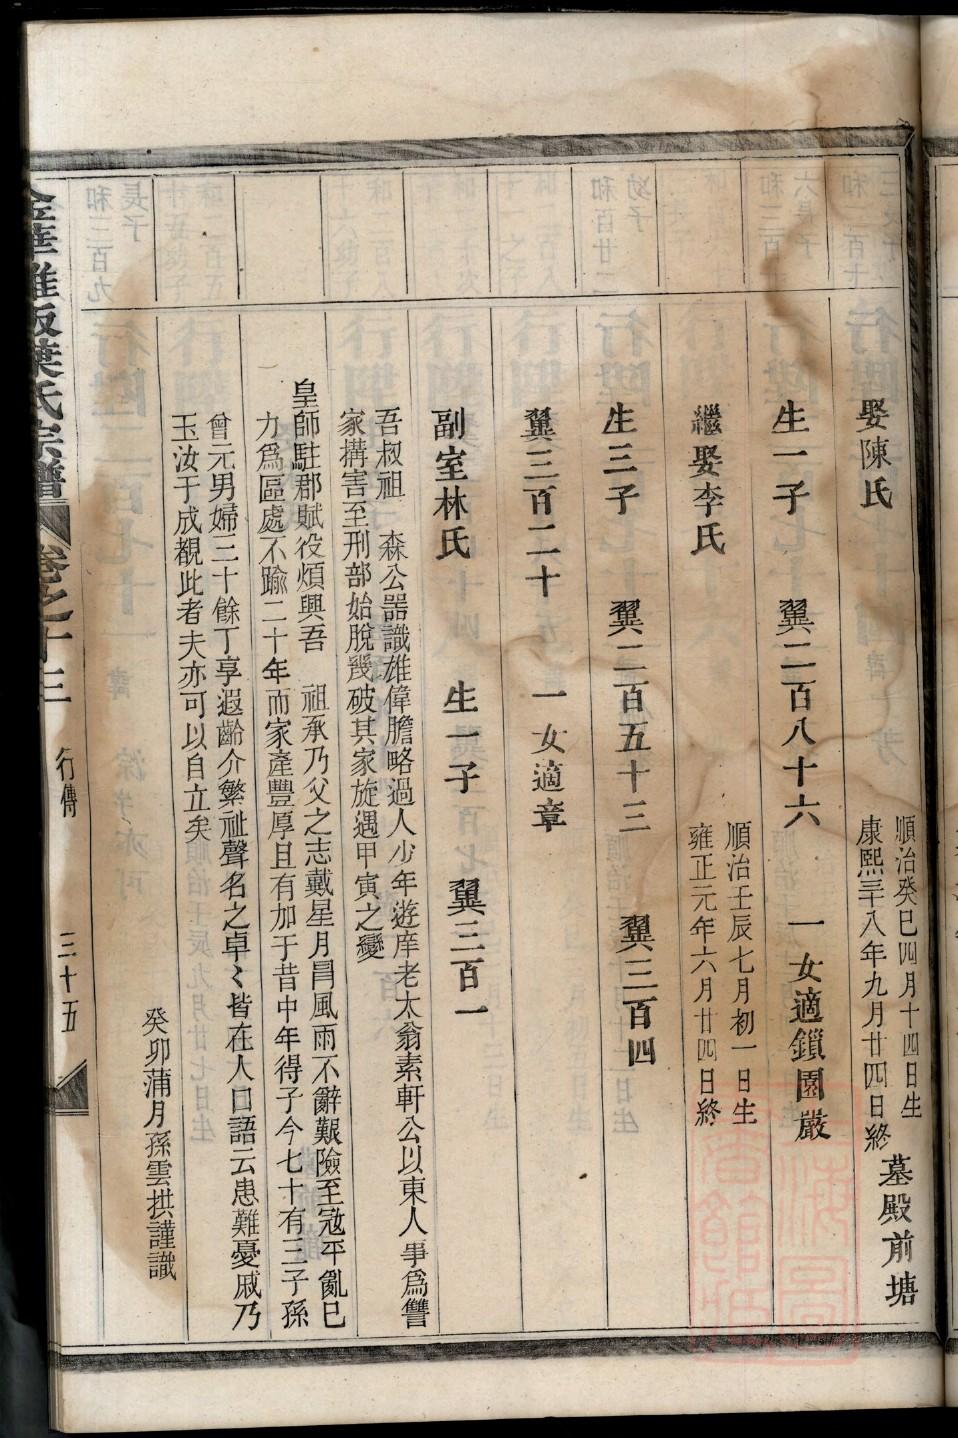 娶陳氏
順治癸巳四月十四日生
康熙三十八年九月廿四日終
墓殿前塘
生一子 翼二百八十六 一女適鎖園嚴
繼娶李氏
順治壬辰七月初一日生
雍正元年六月廿四日終
生三子 翼二百五十三 翼三百四
翼三百二十 一女適章
副室林氏 生一子 翼三百一
吾叔祖 森公器識雄偉膽略過人少年遊庠老太翁素軒公以東人爭為讐
家搆害至刑部始脫幾破其家旋遇甲寅之變
皇師駐郡賦役煩興吾 祖承乃父之志戴星月冐風雨不辭艱險至冦平亂已
力為區處不踰二十年而家產豐厚且有加于昔中年得子今七十有三子孫
曾元男婦三十餘丁享遐齡介繁祉聲名之卓〻皆在人口語云患難憂戚乃
玉汝于成觀此者夫亦可以自立矣
癸卯蒲月孫雲拱謹識
金華雅畈葉氏宗譜 卷之十三 行傳 三十五